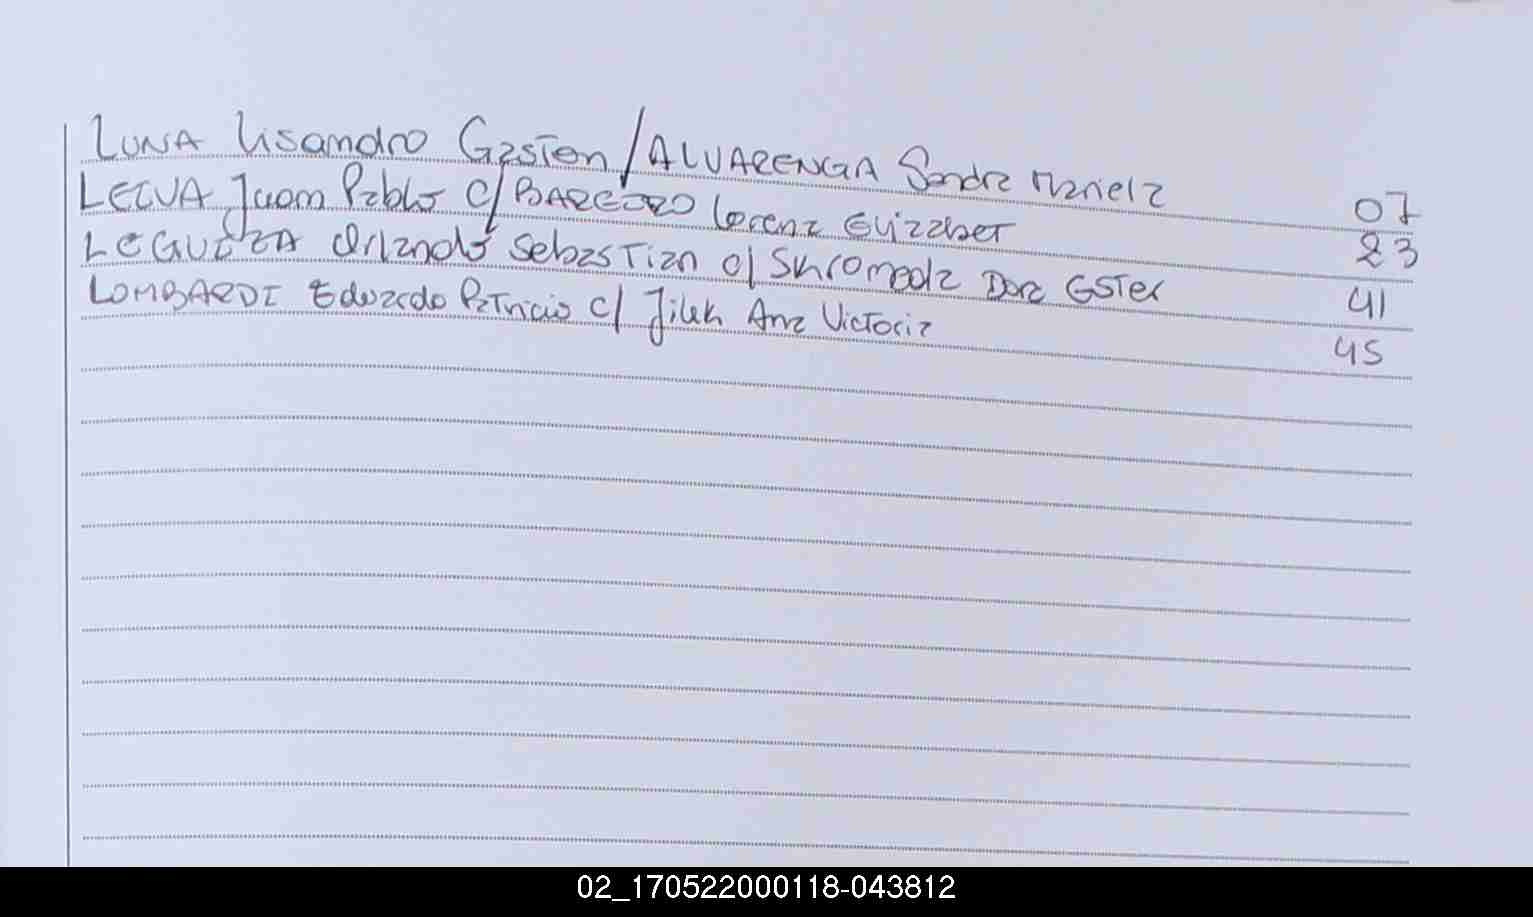 LUNA Lisandro Gaston / ALVARENGA Sandra Mariela 07
LEIVA Juan Pablo C/ BAREIRO Lorena Elizabet 23
LEGUIZA Orlando Sebastian c/ Dora Ester 41
LOMBARDI Eduardo Patricio C/ Jilek Ana Victoria 45
02_170522000118-043812